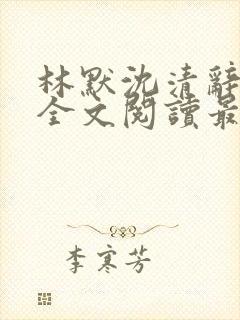 林默沈清辭
全文閱讀最
李寒芳